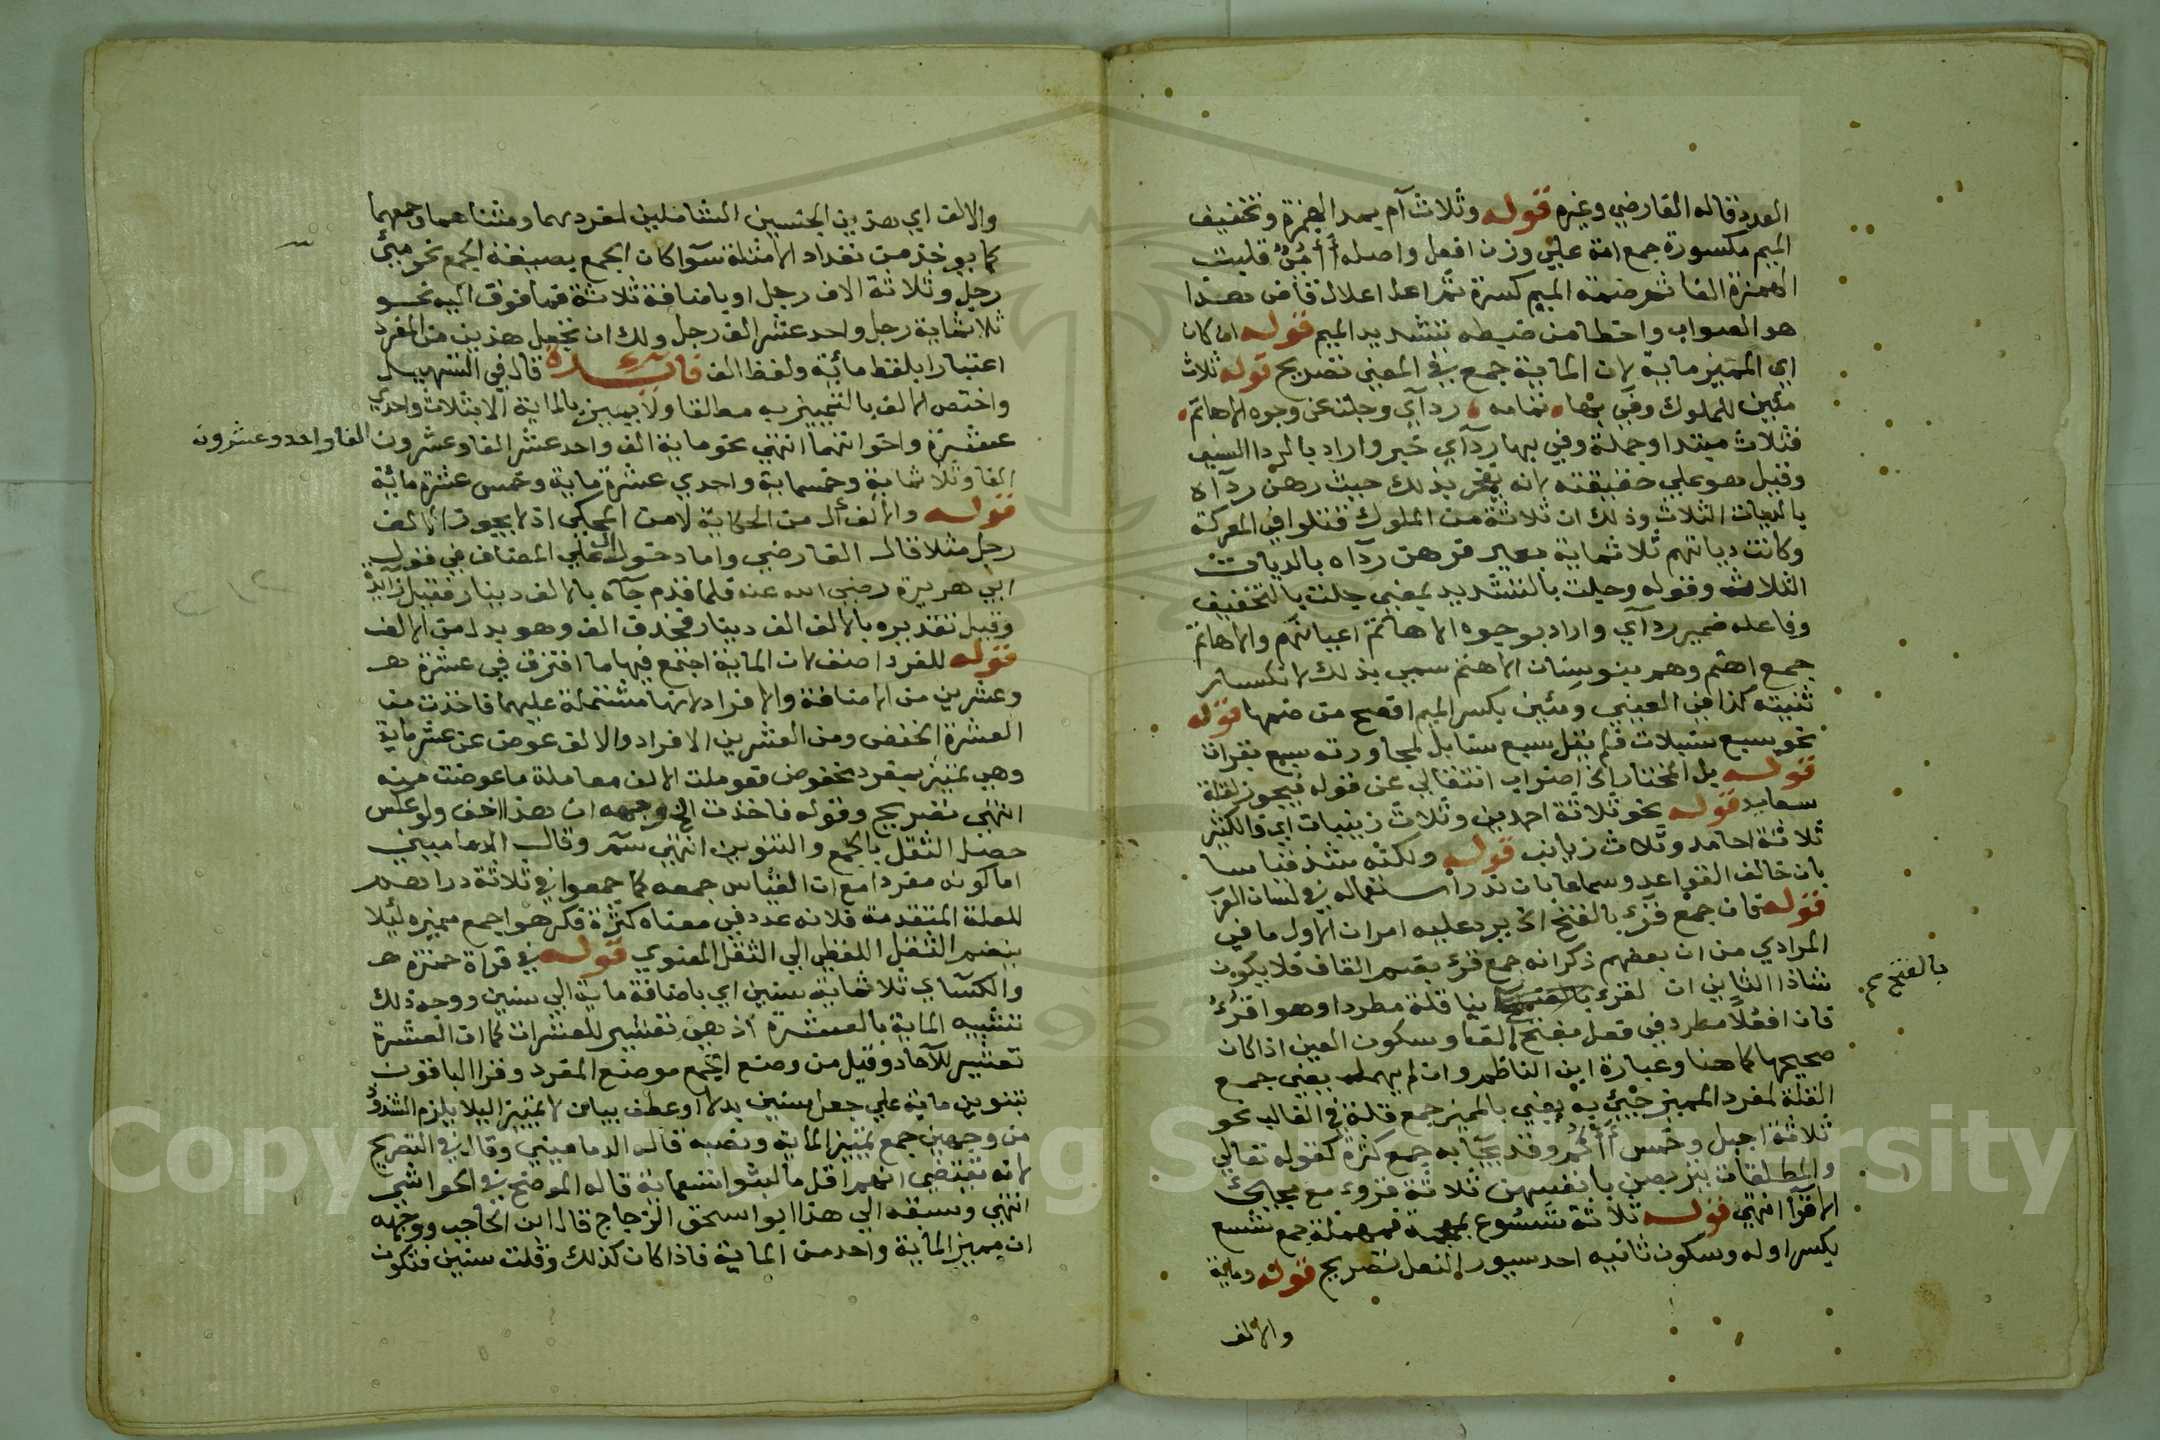 العدد قاله الفارضي وغيره قوله وثلاث آم بمد الهمزة وتخفيف
الميم مكسورة جمع امة علي وزن افعل واصله أأمُوٌ قلبت
الهمزة الفا ثم ضمة الميم كسرة ثم اعل اعلال قاض هذا
هو الصواب واخطا من ضبطه بتشديد الميم قوله ان كان
اي المميز ماية لان الماية جمع في المعني تصريح قوله ثلاث
مئين للملوك وفي بها تمامه ردآي وجلت عن وجوه الاهاتم
فثلاث مبتدا وجملة وفي بها ردآي خبر واراد بالردا السيف
وقيل هو علي حقيقته لانه يفخر بذلك حيث رهن ردآه
بالديات الثلاث وذلك ان ثلاثة من الملوك قتلوا في المعركة
وكانت دياتهم ثلاثماية بعير فرهن ردآه بالديات
الثلاث وقوله وجلت بالتشديد بمعني جلت بالتخفيف
وفاعله ضمير ردآي واراد بوجوه الاهاتم اعيانهم والاهاتم
جمع اهتم وهم بنو سنان الاهتم سمي بذلك لانكسار
ثنيته كذا في العيني ومئين بكسر الميم افصح من ضمها قوله
نحو سبع سنبلات فلم يقل سبع سنابل لمجاورته سبع بقرات
قوله بل المختار الخ اضراب انتقالي عن قوله فيجوز لقلة
سعايد قوله نحو ثلاثة احمدين وثلاث زينبات اي والكثير
ثلاثة احامد وثلاث زيانب قوله ولكنه شذ قياسا
بان خالف القواعد وسماعا بان ندر استعماله في لسان العرب
قوله فان جمع قرء بالفتح الخ يرد عليه امران الاول ما في
المرادي من ان بعضهم ذكر انه جمع قرء بضم القاف فلا يكون
شاذا الثاني ان لقرء بنا قلة مطردا وهو اقرُءٌ
بالفتح صح
فان افعُلاً مطرد في فعل بفتح الفا وسكون العين اذا كان
صحيحها كما هنا وعبارة ابن الناظم وان لم يهمل يعني جمع
القلة لمفرد المميز جيْءَ بهْ يعني بالمميز جمع قلة في الغالب نحو
ثلاثة اجبل وخمس وقد يجآ به جمع كثرة كقوله تعالي
والمطلقات يتربصن بانفسهن ثلاثة قروء مع مجيء
الاقرآ انتهي قوله ثلاثة شسوع بمعجمة فمهملة جمع شسع
بكسر اوله وسكون ثانيه احد سيور النعل تصريح قوله وماية
والالف
والالف اي هذين الجنسين الشاملين لمفردهما ومثناهما وجمعهما
كما يوخذ من تعداد الامثلة سوآ كان الجمع بصيغة الجمع نحو مئي
رجل وثلاثة الاف رجل او باضافة ثلاثة فما فوق اليه نحو
ثلاثماية رجل واحد عشر الف رجل ولك ان تجعل هذين من المفرد
اعتبارا بلفظ مائة ولفظ الف فائدة قال في التسهيل
واختص الالف بالتمييز به مطلقا ولا يميز بالماية الا ثلاث واحدي
عشرة واخواتهما انتهي نحو ماية الف واحد عشر الفا وعشرون الفا واحد وعشرون
الفا وثلاثماية وخمسماية واحدي عشرة ماية وخمس عشرة مائة
قوله والالف أل من الحكاية لا من المحكي اذ لا يجوز الالف
رجل مثلا قاله الفارضي واما دخول ال علي المضاف في قول
ابي هريرة رضي الله عنه فلما قدم جآه بالالف دينار فقيل زآيدة
وقيل تقديره بالالف الف دينار فحذف الف وهو بدل من الالف
قوله للفرد اضف لان الماية اجتمع فيها ما افترق في عشرة
وعشرين من الاضافة والافراد لانها مشتملة عليهما فاخذت من
العشرة الخفض ومن العشرين الافراد والالف عوض عن عشر ماية
وهي تميز بمفرد مخفوض فعوملت الالف معاملة ما عوضت منه
انتهي تصريح وقوله فاخذت الخ وجهه ان هذا اخف ولو عكس
حصل الثقل بالجمع والتنوين انتهي سم وقال الدماميني
اما كونه مفردا مع ان القياس جمعه كما جمعوا في ثلاثة دراهم
للعلة المتقدمة فلانه عدد في معناه كثرة فكرهوا جمع مميزه لئلا
ينضم الثقل اللفظي الي الثقل المعنوي قوله في قرآة حمزة
والكسآي ثلاثماية سنين اي باضافة ماية الي سنين ووجه ذلك
تشبيه الماية بالعشرة اذ هي تعشير للعشرات كما ان العشرة
تعشير للآحاد وقيل من وضع الجمع موضع المفرد وقرا الباقون
بتنوين ماية علي جعل سنين بدلا او عطف بيان لا تمييزا ليلا يلزم الشذوذ
من وجهين جمع تمييز الماية ونصبه قاله الدماميني وقال في التصريح
لانه يقتضي انهم اقل ما لبثوا تسعماية قاله الموضح في الحواشي
انتهي وسبقه الي هذا ابو اسحق الزجاج قال ابن الحاجب ووجهه
ان مميز الماية واحد من الماية فاذا كان كذلك وقلت سنين فتكون